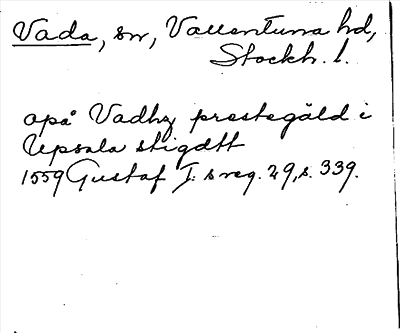 Vada, sn, Vallentuna hd,
Stockh. l.
opå Vadhz prestegäld i
Upsala stigdtt
1559 Gustaf I: s reg. 29, s. 339.